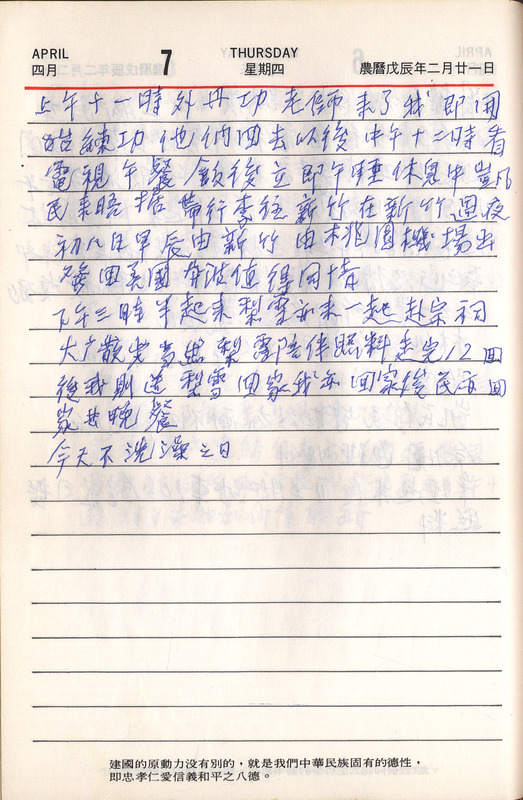 APRIL 7 THURSDAY
四月 星期四 農曆戊辰年二月廿一日
上午十一時外丹功老師來了我即開
始練功他們回去以後中午十二時看
電視午餐飯後立即午睡休息中
民來晤 帶行李往新竹在新竹過夜
初八日早辰由新竹由桃園機場出
發回美國奔波值得同情
下午三時半起來梨雪亦來一起赴宗祠
大廣散步 梨雪陪伴照料走完12回
後我則送梨雪回家我亦回家後民亦回
家共晚餐
今天不洗澡之日
建國的原動力没有別的，就是我們中華民族固有的德性，
即忠孝仁愛信義和平之八德。